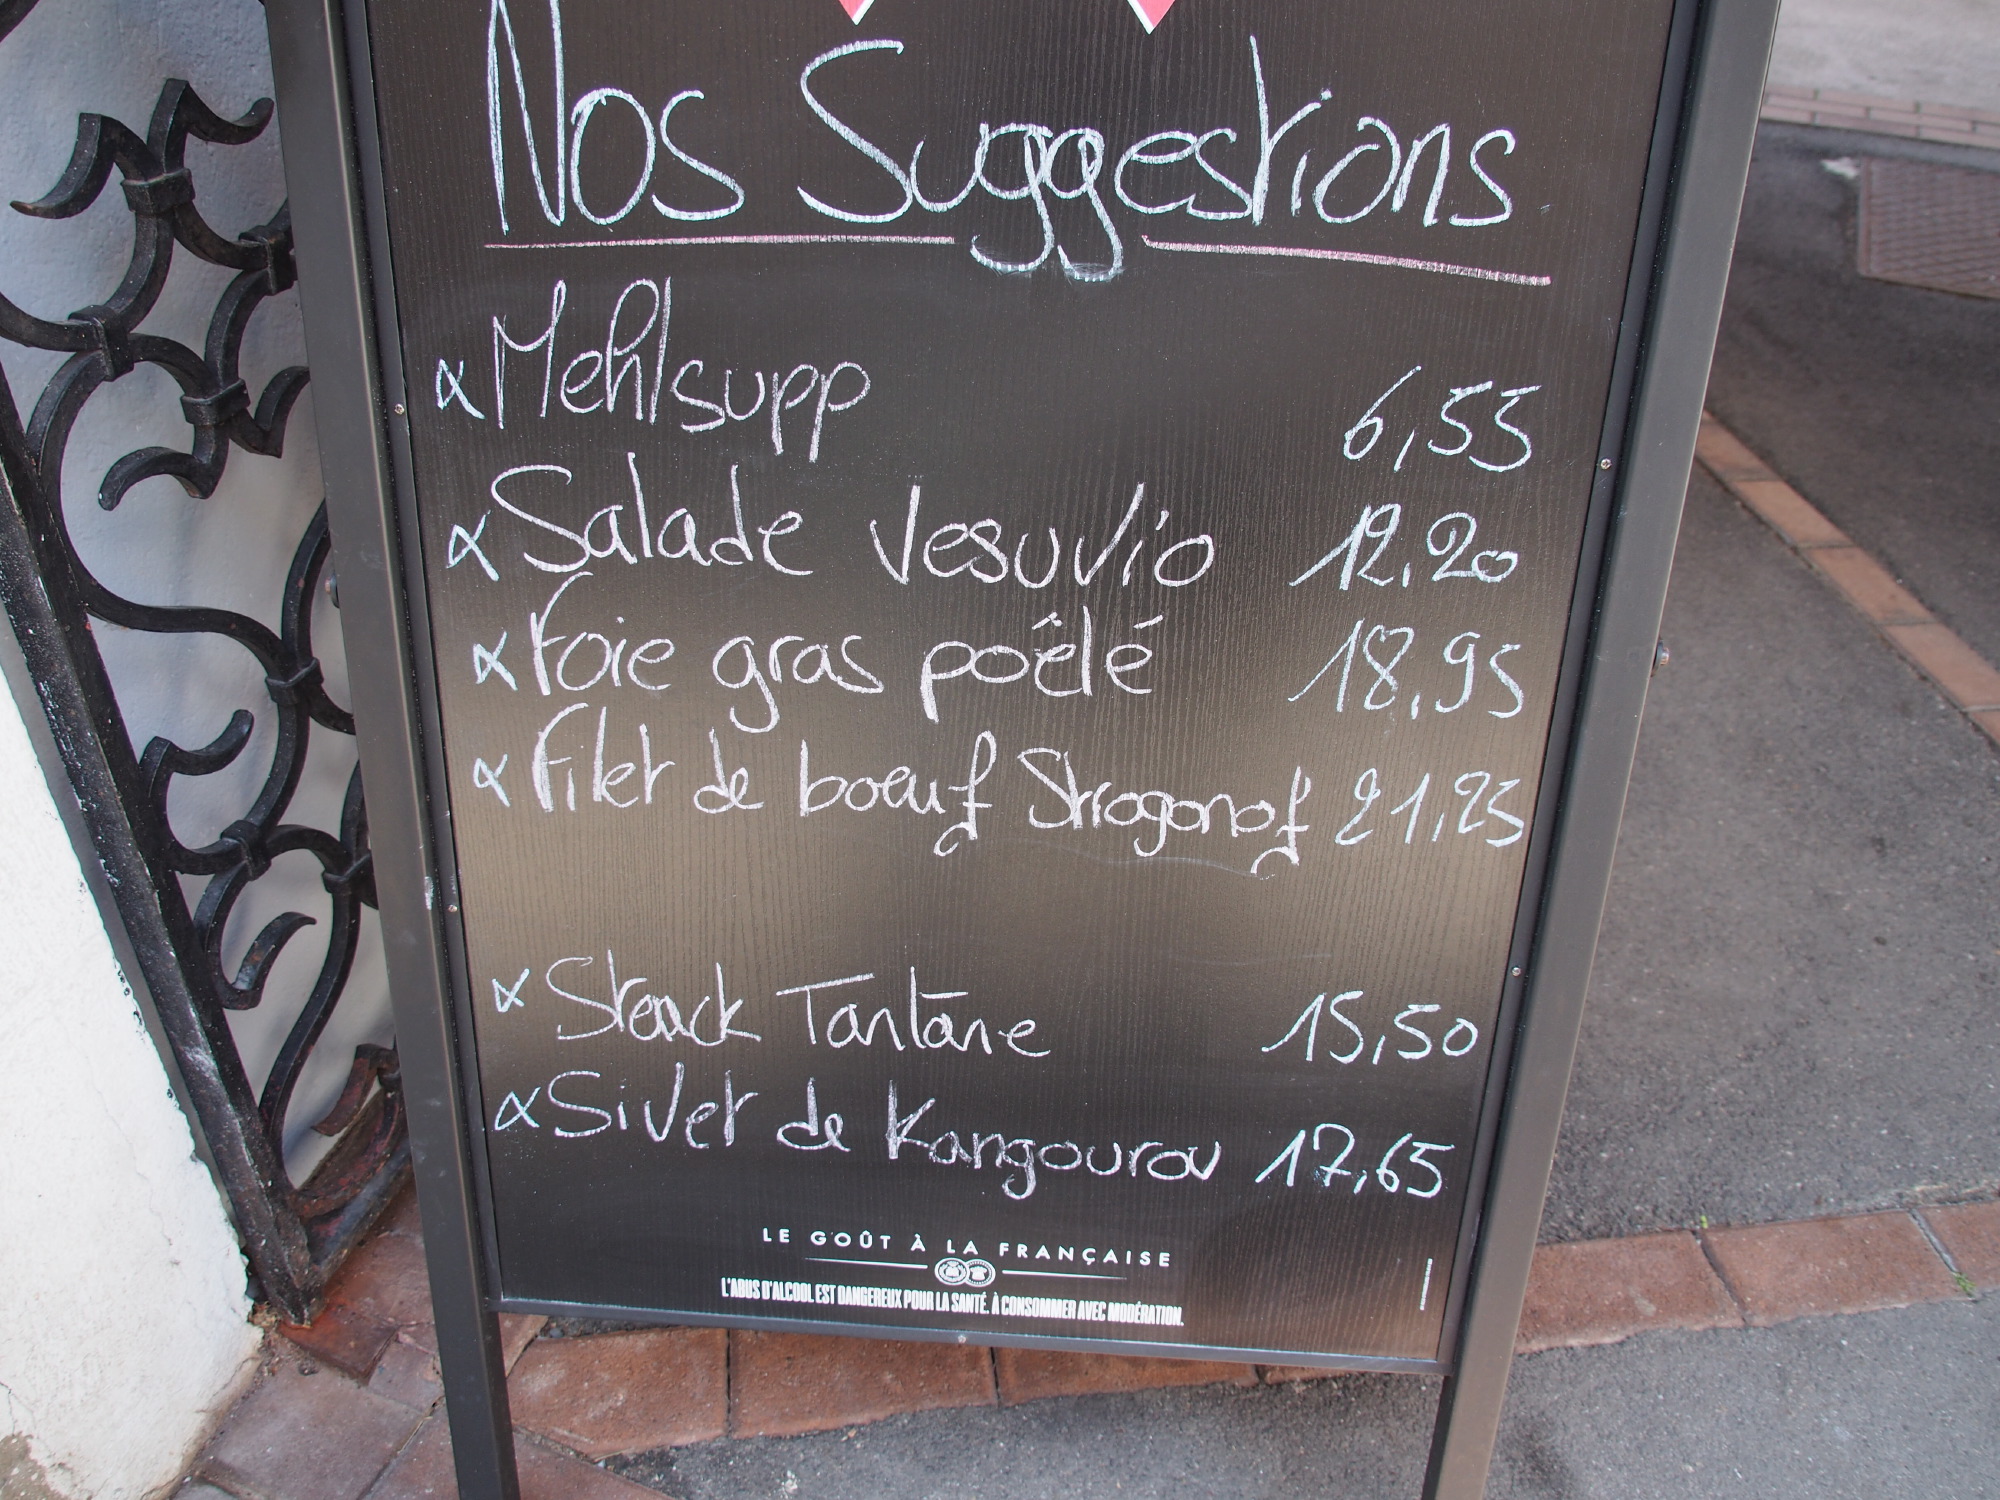 Nos Suggestions
Mehlsupp 6,55
Salade Vesuvio 12,20
Foie gras poêlé 18,95
Filet de boeuf Strogonof 21,25
Stonck Tantāne 15,50
Sivet de Kangourou 17,65
LE GOÛT À LA FRANÇAISE
L'ABUS D'ALCOOL EST DANGEREUX POUR LA SANTÉ. À CONSOMMER AVEC MODÉRATION.